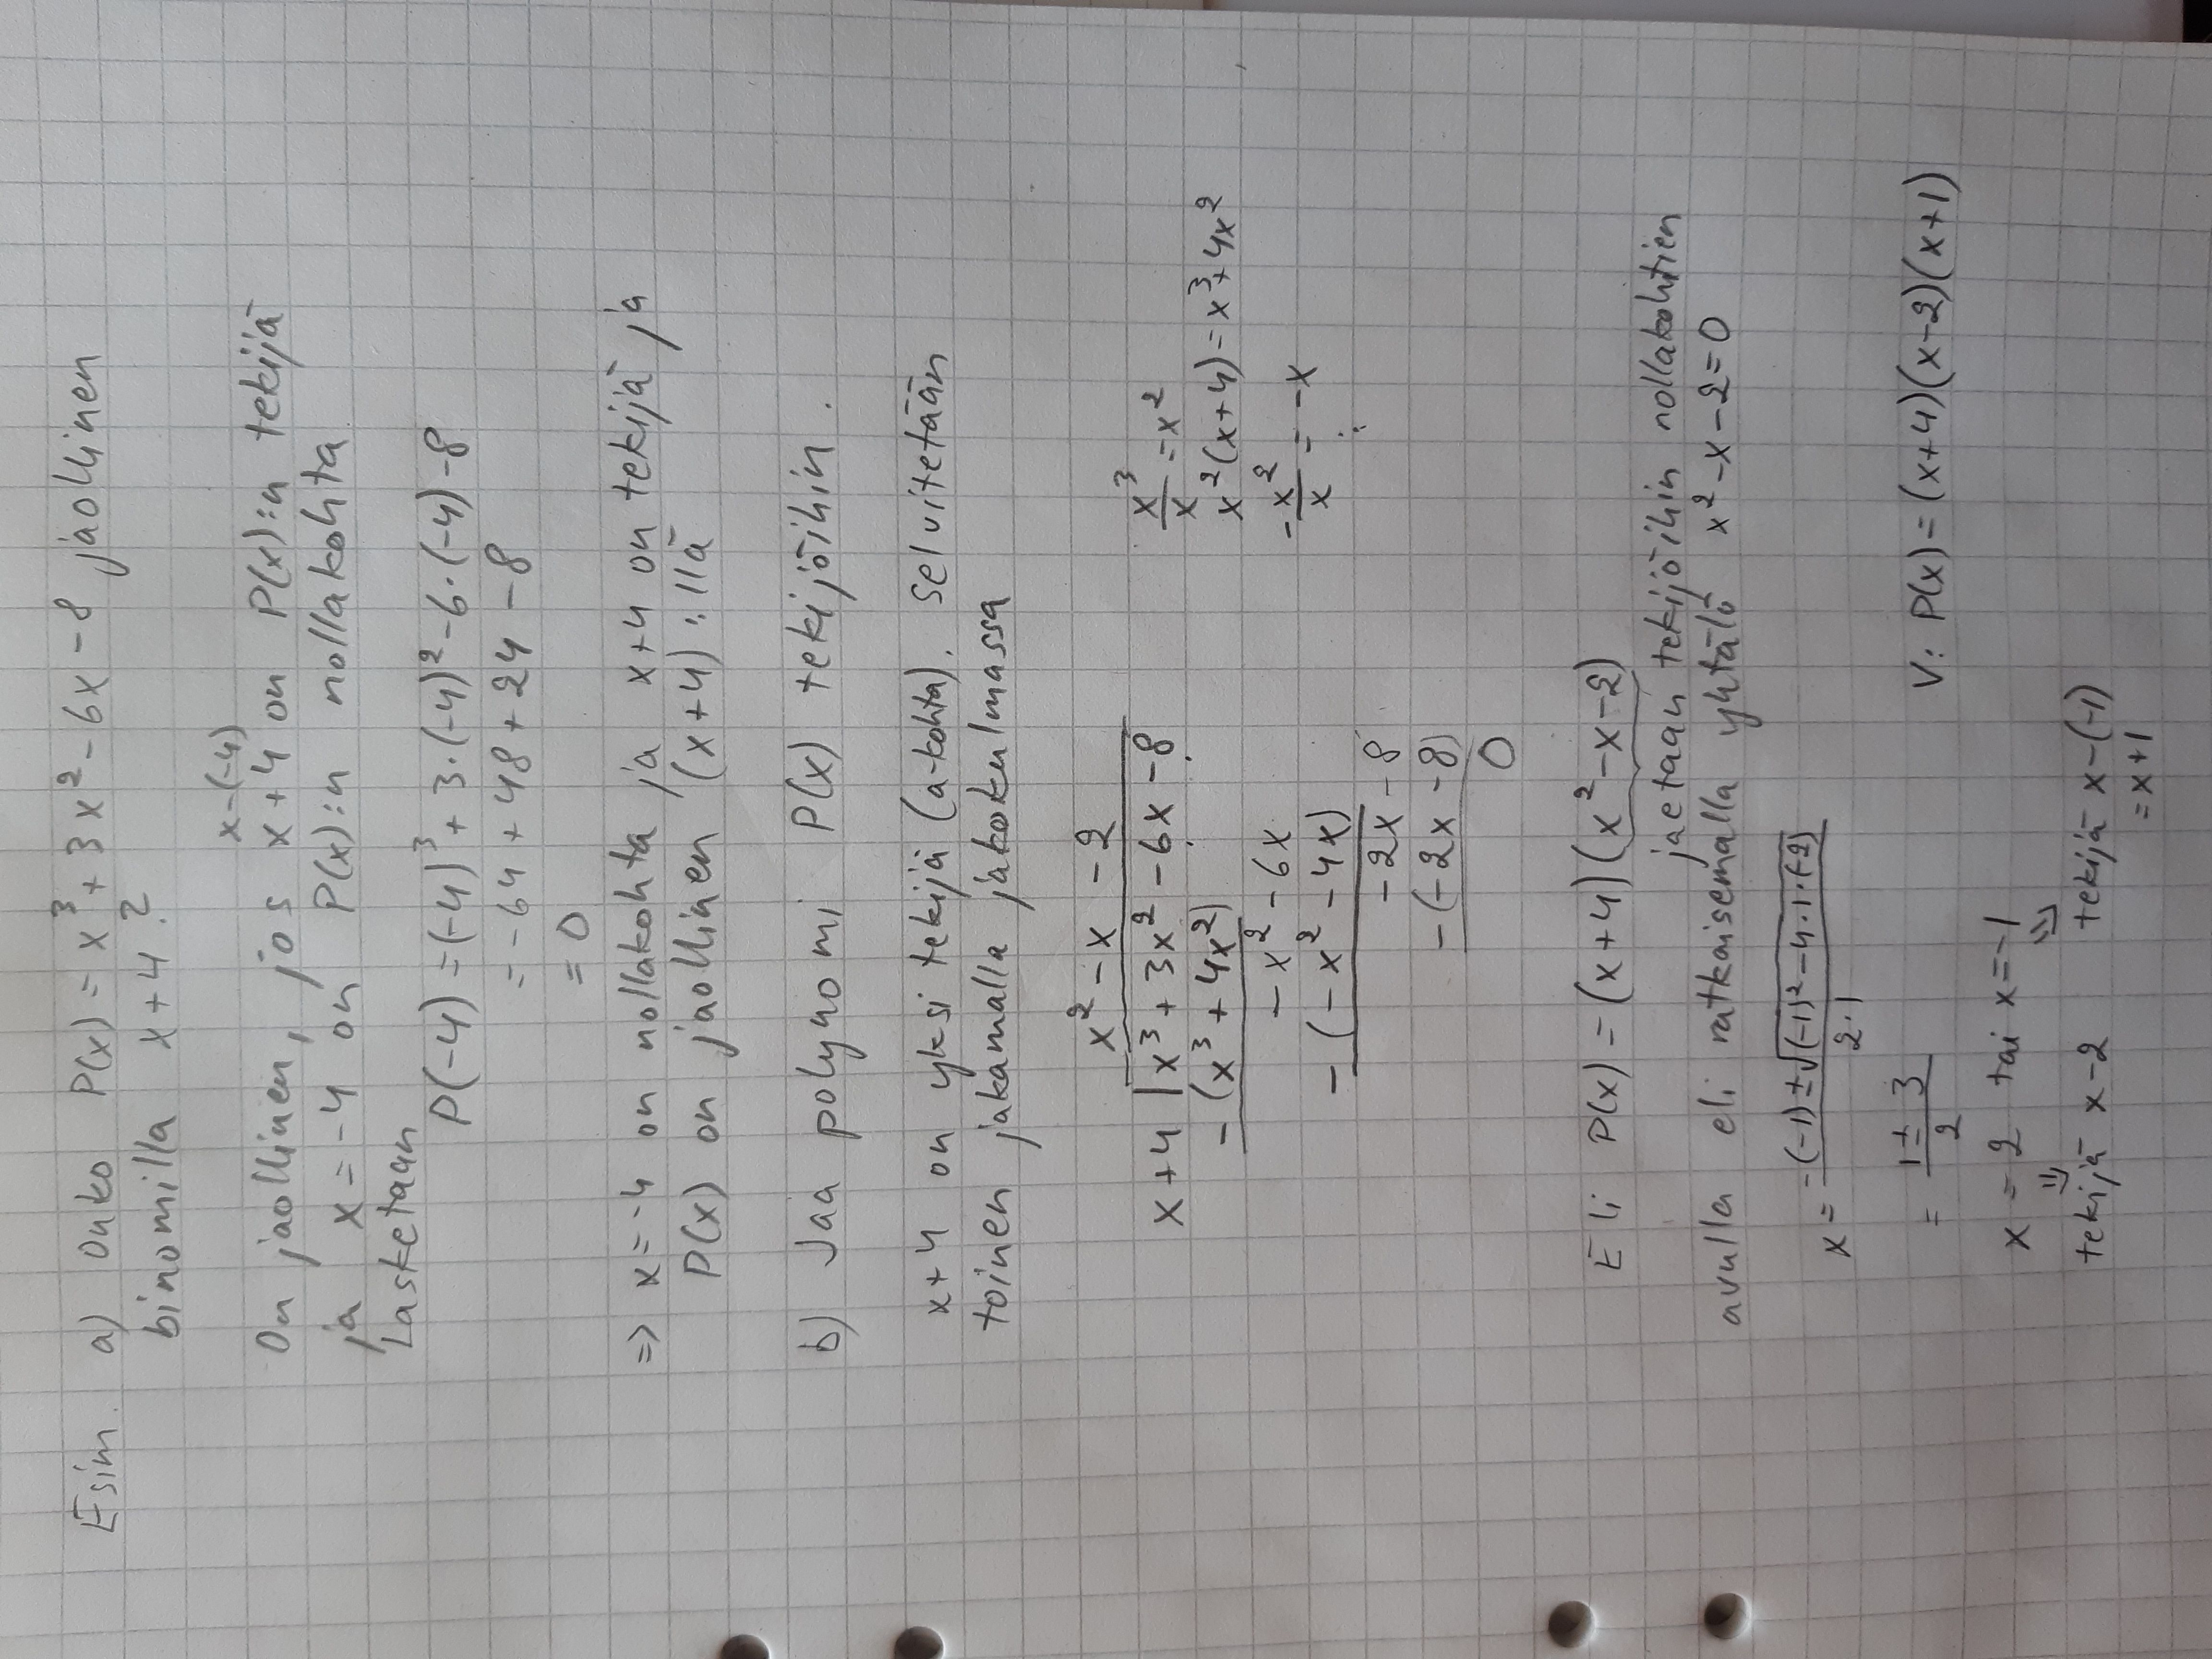 Esim a) Onko P(x) = x³ + 3x² - 6x - 8 jaollinen
binomilla x + 4 ?
x-(-4)
On jaollinen, jos x + 4 on P(x):n tekijä
ja x = -4 on P(x):n nollakohta
Lasketaan
P(-4) = (-4)³ + 3·(-4)² - 6·(-4) - 8
= -64 + 48 + 24 - 8
= 0
=> x = -4 on nollakohta ja x+4 on tekijä ja
P(x) on jaollinen (x+4) :llä
b) Jaa polynomi P(x) tekijöihin.
x+4 on yksi tekijä (a-kohta). Selvitetään
toinen jakamalla jakokulmassa
x² - x - 2
x+4 | x³ + 3x² - 6x - 8
x³/x = x²
-(x³ + 4x²)
x²(x+4) = x³+4x²
-x² - 6x
-x²/x = -x
-(-x² - 4x)
⋮
-2x - 8
-(-2x - 8)
0
Eli P(x) = (x+4)(x² - x - 2)
jaetaan tekijöihin nollakohtien
avulla eli ratkaisemalla yhtälö x² - x - 2 = 0
x = -(-1) ± √(-1)² - 4·1·(-2) / 2·1
= 1 ± 3 / 2
V: P(x) = (x+4)(x-2)(x+1)
x = 2 tai x = -1
⇓ ⇓
tekijä x-2 tekijä x-(-1)
= x+1